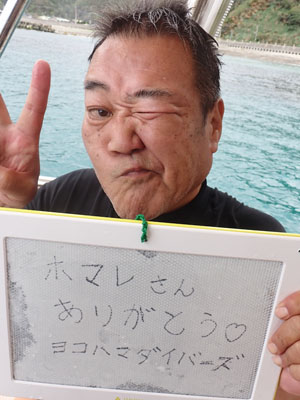 ホマレさん
ありがとう♡
ヨコハマダイバーズ